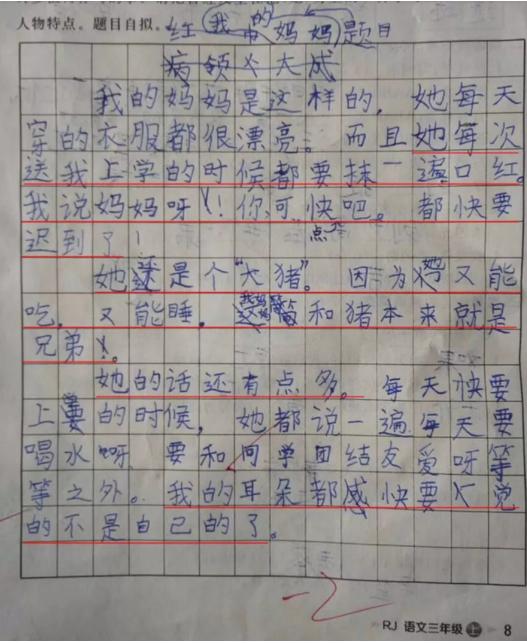 人物特点。题目自拟。
我的妈妈 题目
我的妈妈是这样的，她每天
穿的衣服都很漂亮。而且她每次
送我上学的时候都要抹一遍口红。
我说妈妈呀！你可快点吧。都快要
迟到了！
她还是个“大猪”。因为她又能
吃，又能睡，和猪本来就是
兄弟。
她的话还有点多。每天快要
上学的时候，她都说一遍每天要
喝水呀，要和同学团结友爱呀等
等之外。我的耳朵都感快要觉
的不是自己的了。
RJ 语文三年级 上 8